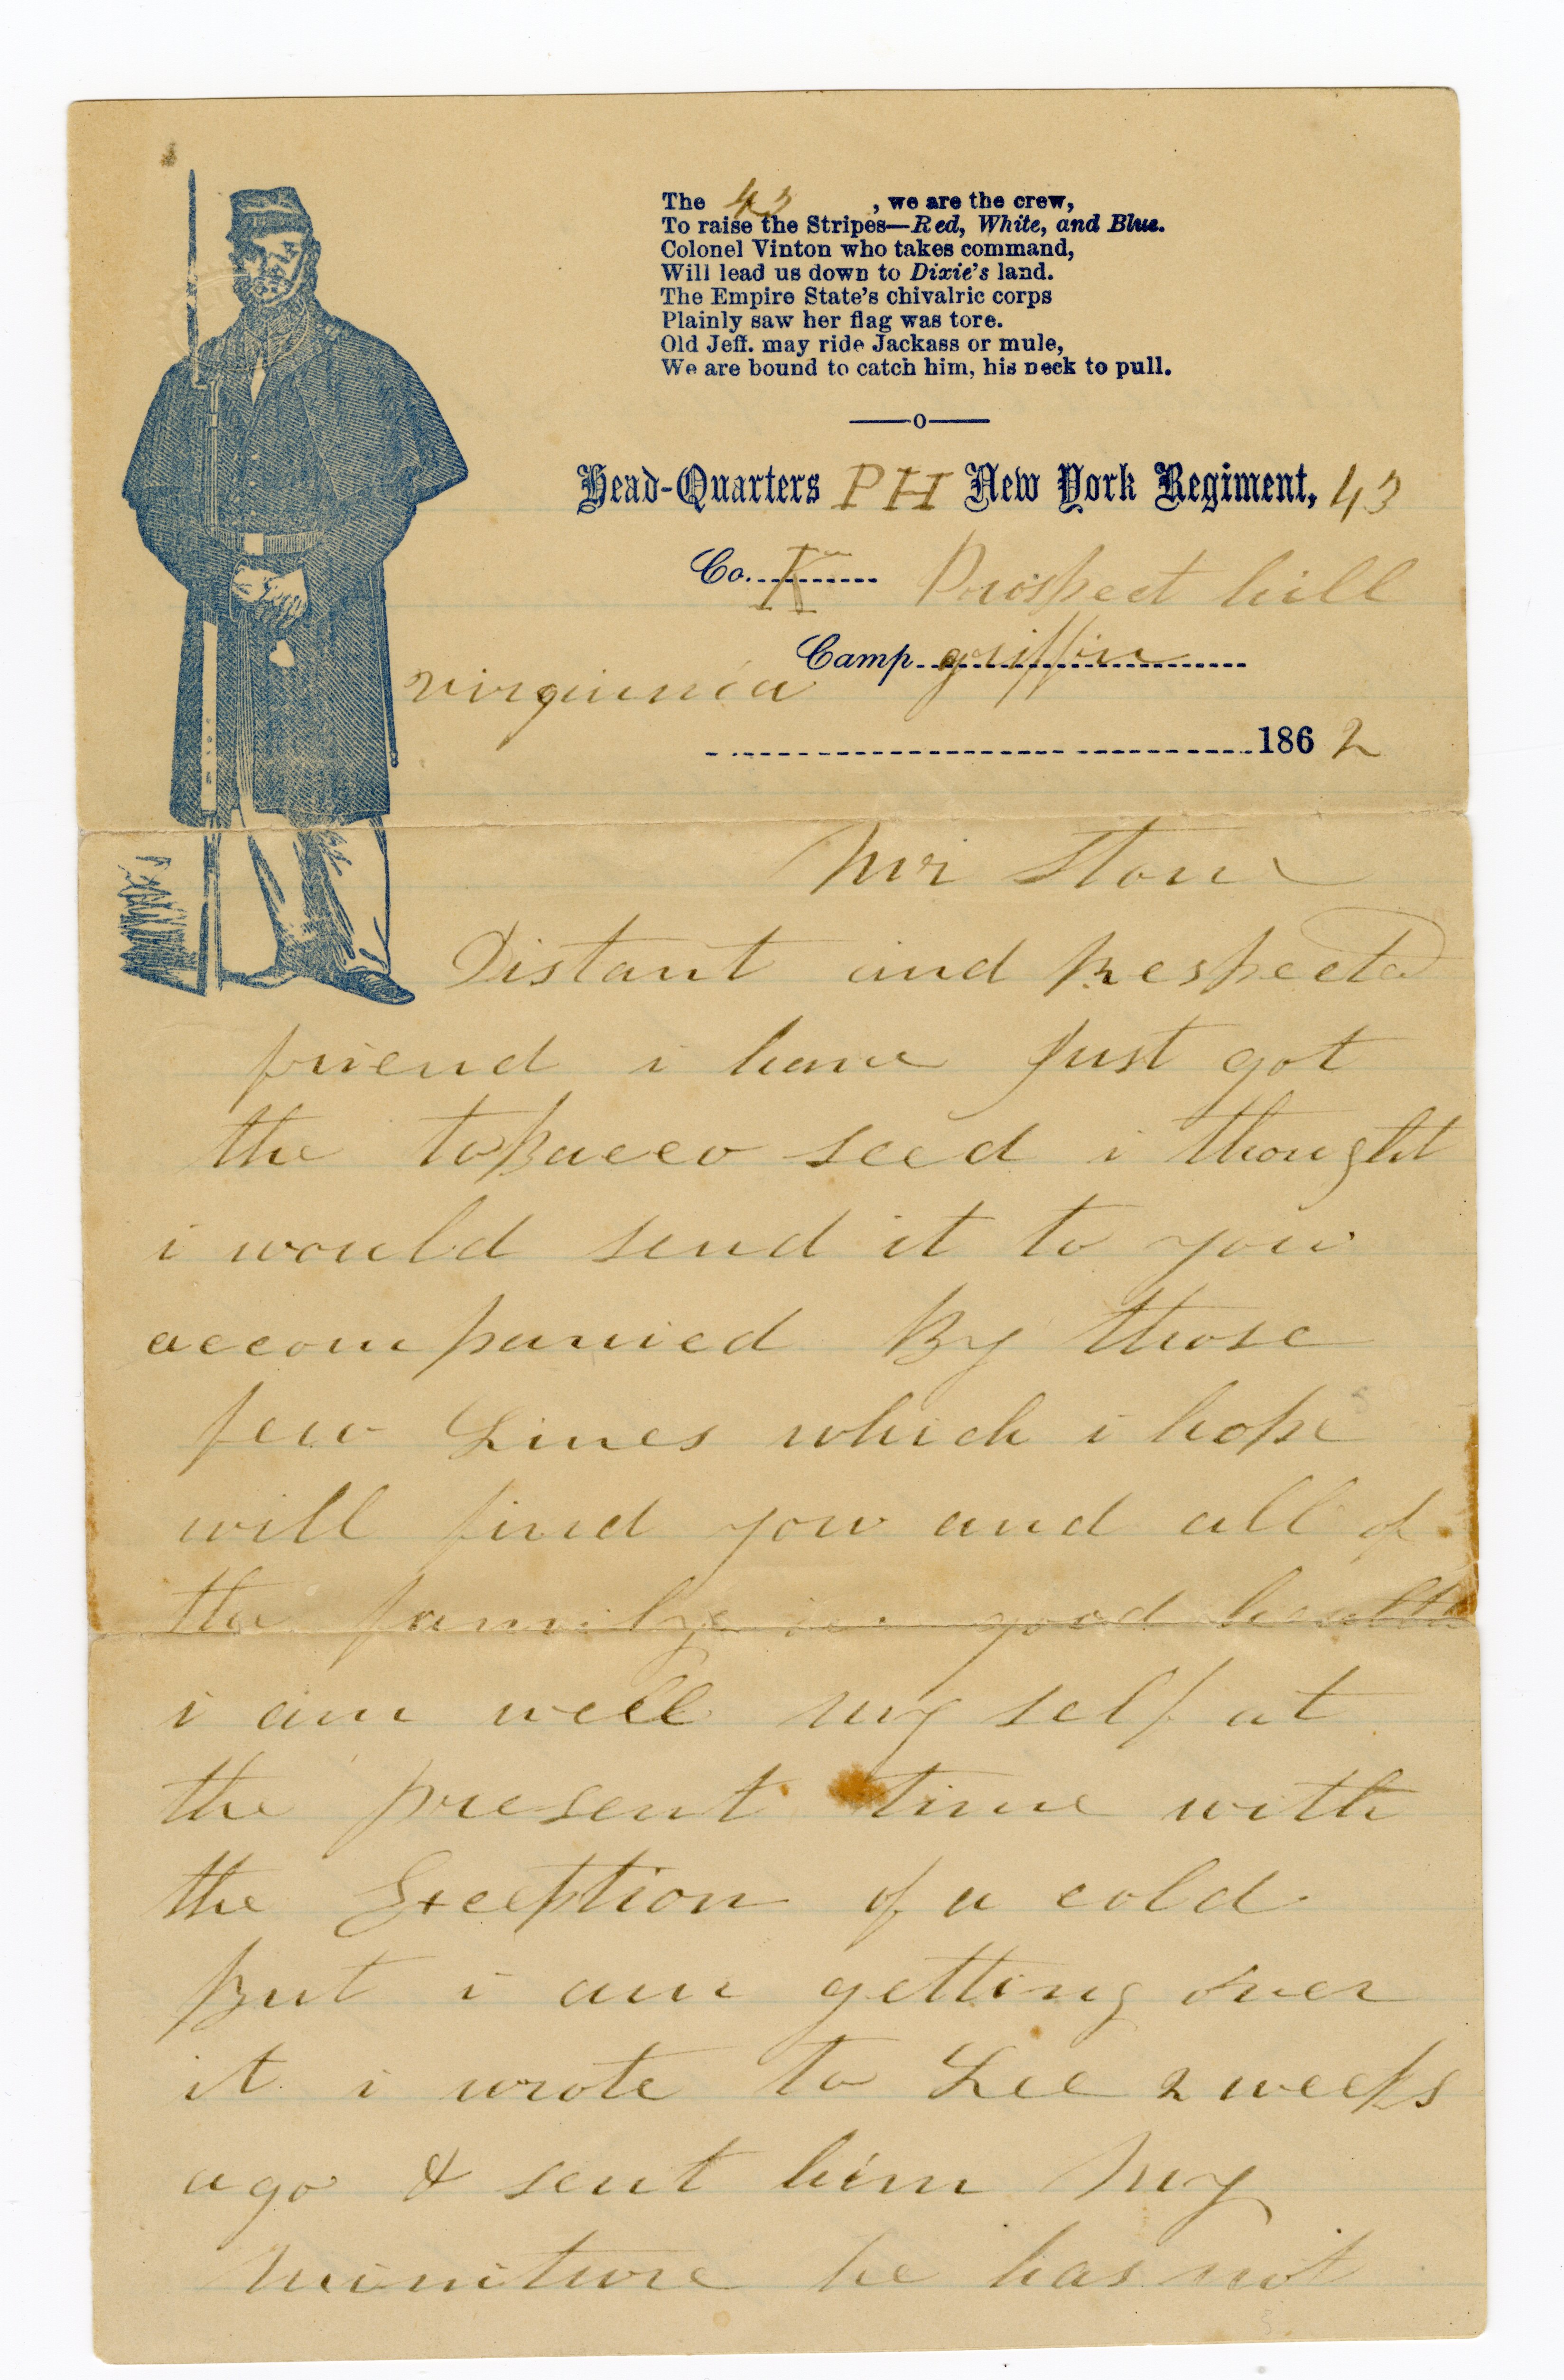 The 43 , we are the crew,
To raise the Stripes—Red, White, and Blue.
Colonel Vinton who takes command,
Will lead us down to Dixie's land.
The Empire State's chivalric corps
Plainly saw her flag was tore.
Old Jeff. may ride Jackass or mule,
We are bound to catch him, his neck to pull.
Head-Quarters PH New York Regiment, 43
Co. K Prospect hill
Camp griffin
virginnia
186 2
Mr Stone
Distant and Respected
friend i have Just got
the tobacco seed i thought
i would send it to you
accompanied By those
few Lines which i hope
will find you and all of
the family in good health
i am well my self at
the present time with
the Exception of a cold
But i am getting over
it i wrote to Lee 2 weeks
ago & sent him My
Miniture he has not